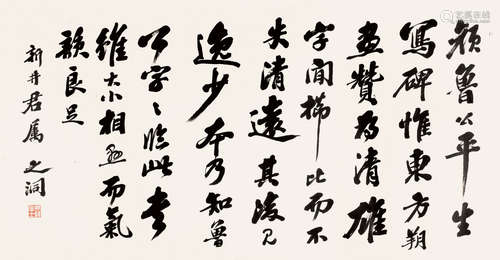 顏魯公平生
寫碑惟東方朔
畫贊為清雄
字間櫛比而不
失清遠其後見
逸少本乃知魯
公字〻臨此書
雖大小相懸而氣
韻良是
新井君屬 之洞